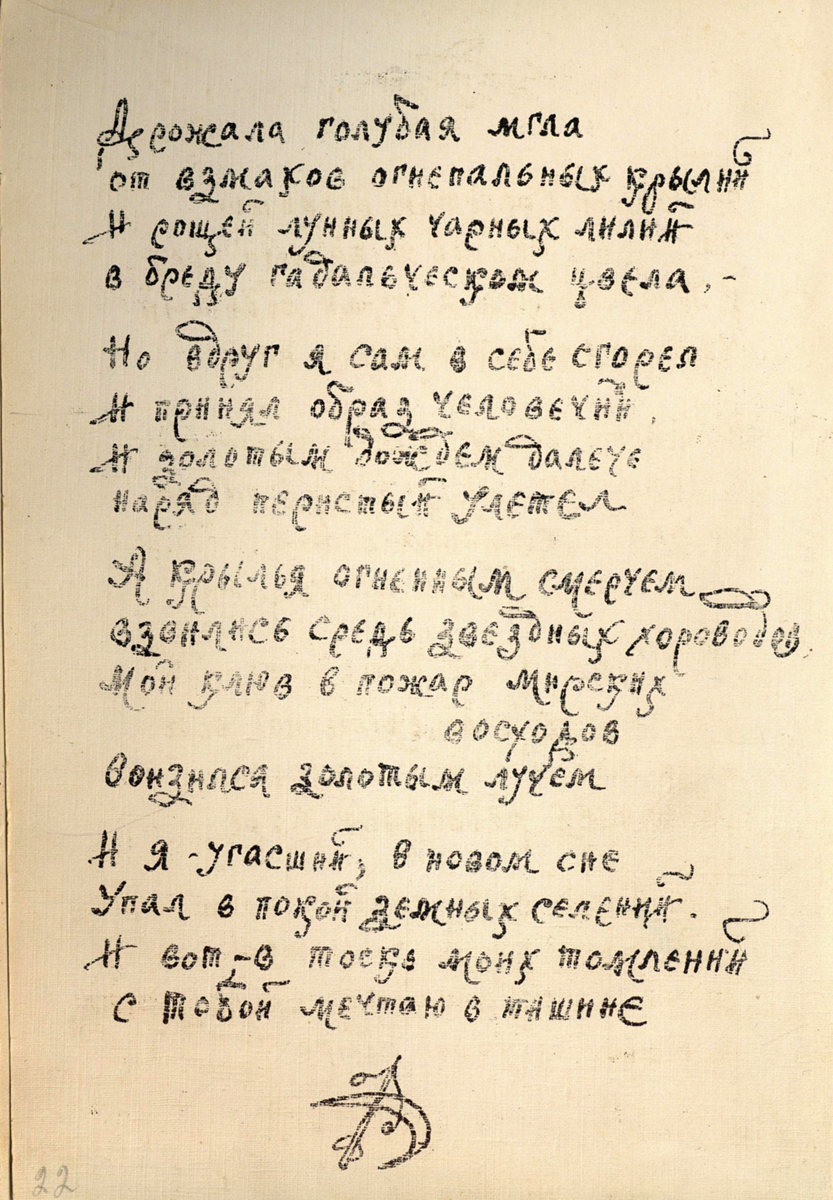 Дрожала голубая мгла
от взмахов огнепальных крылий
И рощей лунных чарных лилий
в бреду гадальческом цвела, -
Но вдруг я сам в себе сгорел
И принял образ человечий,
И золотым дождем далече
наряд перистый улетел
А крылья огненным смерчем
взвились средь звездных хороводов,
Мой клюв в пожар мирских
восходов
Вонзился золотым лучем
И я - угасший, в новом сне
Упал в покой земных селений.
И вот - в тоске моих томлений
с тобой мечтаю в тишине
22